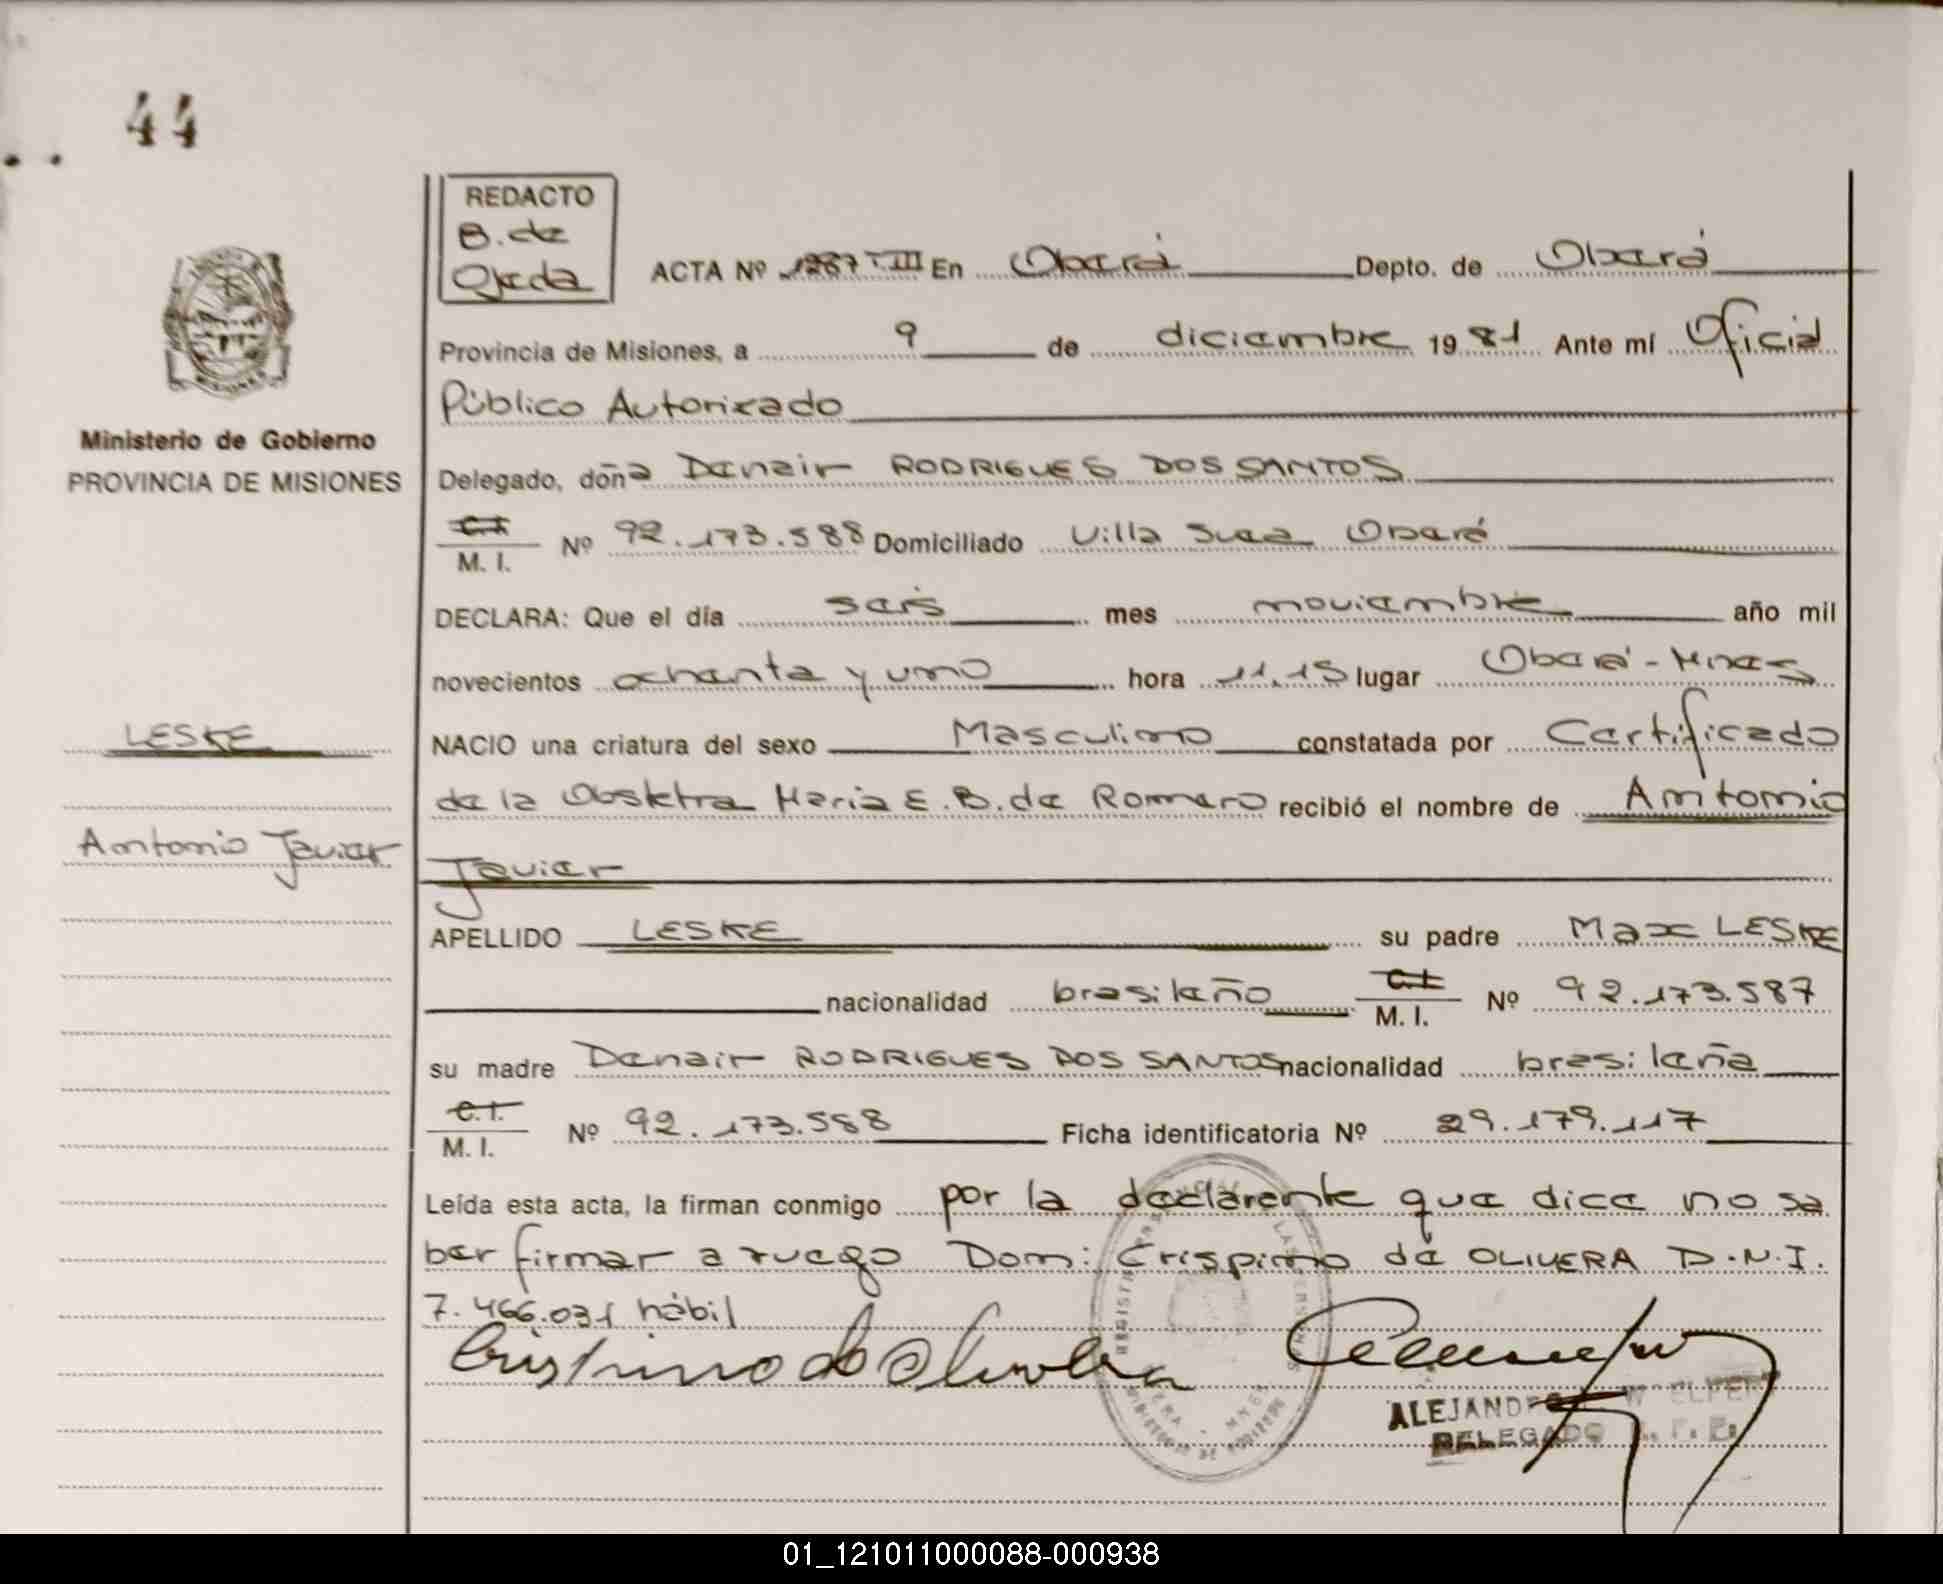 44
REDACTO
B. de
Ojeda
ACTA Nº 1287-T.III En Oberá Depto. de Oberá
Provincia de Misiones, a 9 de diciembre 1981 Ante mí Oficial
Público Autorizado
Ministerio de Gobierno
PROVINCIA DE MISIONES
Delegado, doña Denair RODRIGUES DOS SANTOS
C.I.
M. I. Nº 92.173.588 Domiciliado Villa Svea Oberá
DECLARA: Que el día seis mes noviembre año mil
novecientos ochenta y uno hora 11,15 lugar Oberá-Mnes
LESKE
NACIO una criatura del sexo Masculino constatada por Certificado
de la Obstetra Maria E. B. de Romero recibió el nombre de Antonio
Antonio Javier
Javier
APELLIDO LESKE su padre Max LESKE
nacionalidad brasileño C.I. M. I. Nº 92.173.587
su madre Denair RODRIGUES DOS SANTOS nacionalidad brasileña
C.I.
M. I. Nº 92.173.588 Ficha identificatoria Nº 29.179.117
Leída esta acta, la firman conmigo por la declarente que dice no sa
ber firmar a ruego Don: Crispino de OLIVERA D.N.I.
7.466.031 hábil
Crispino de Olivera
DELEGADO
01_121011000088-000938